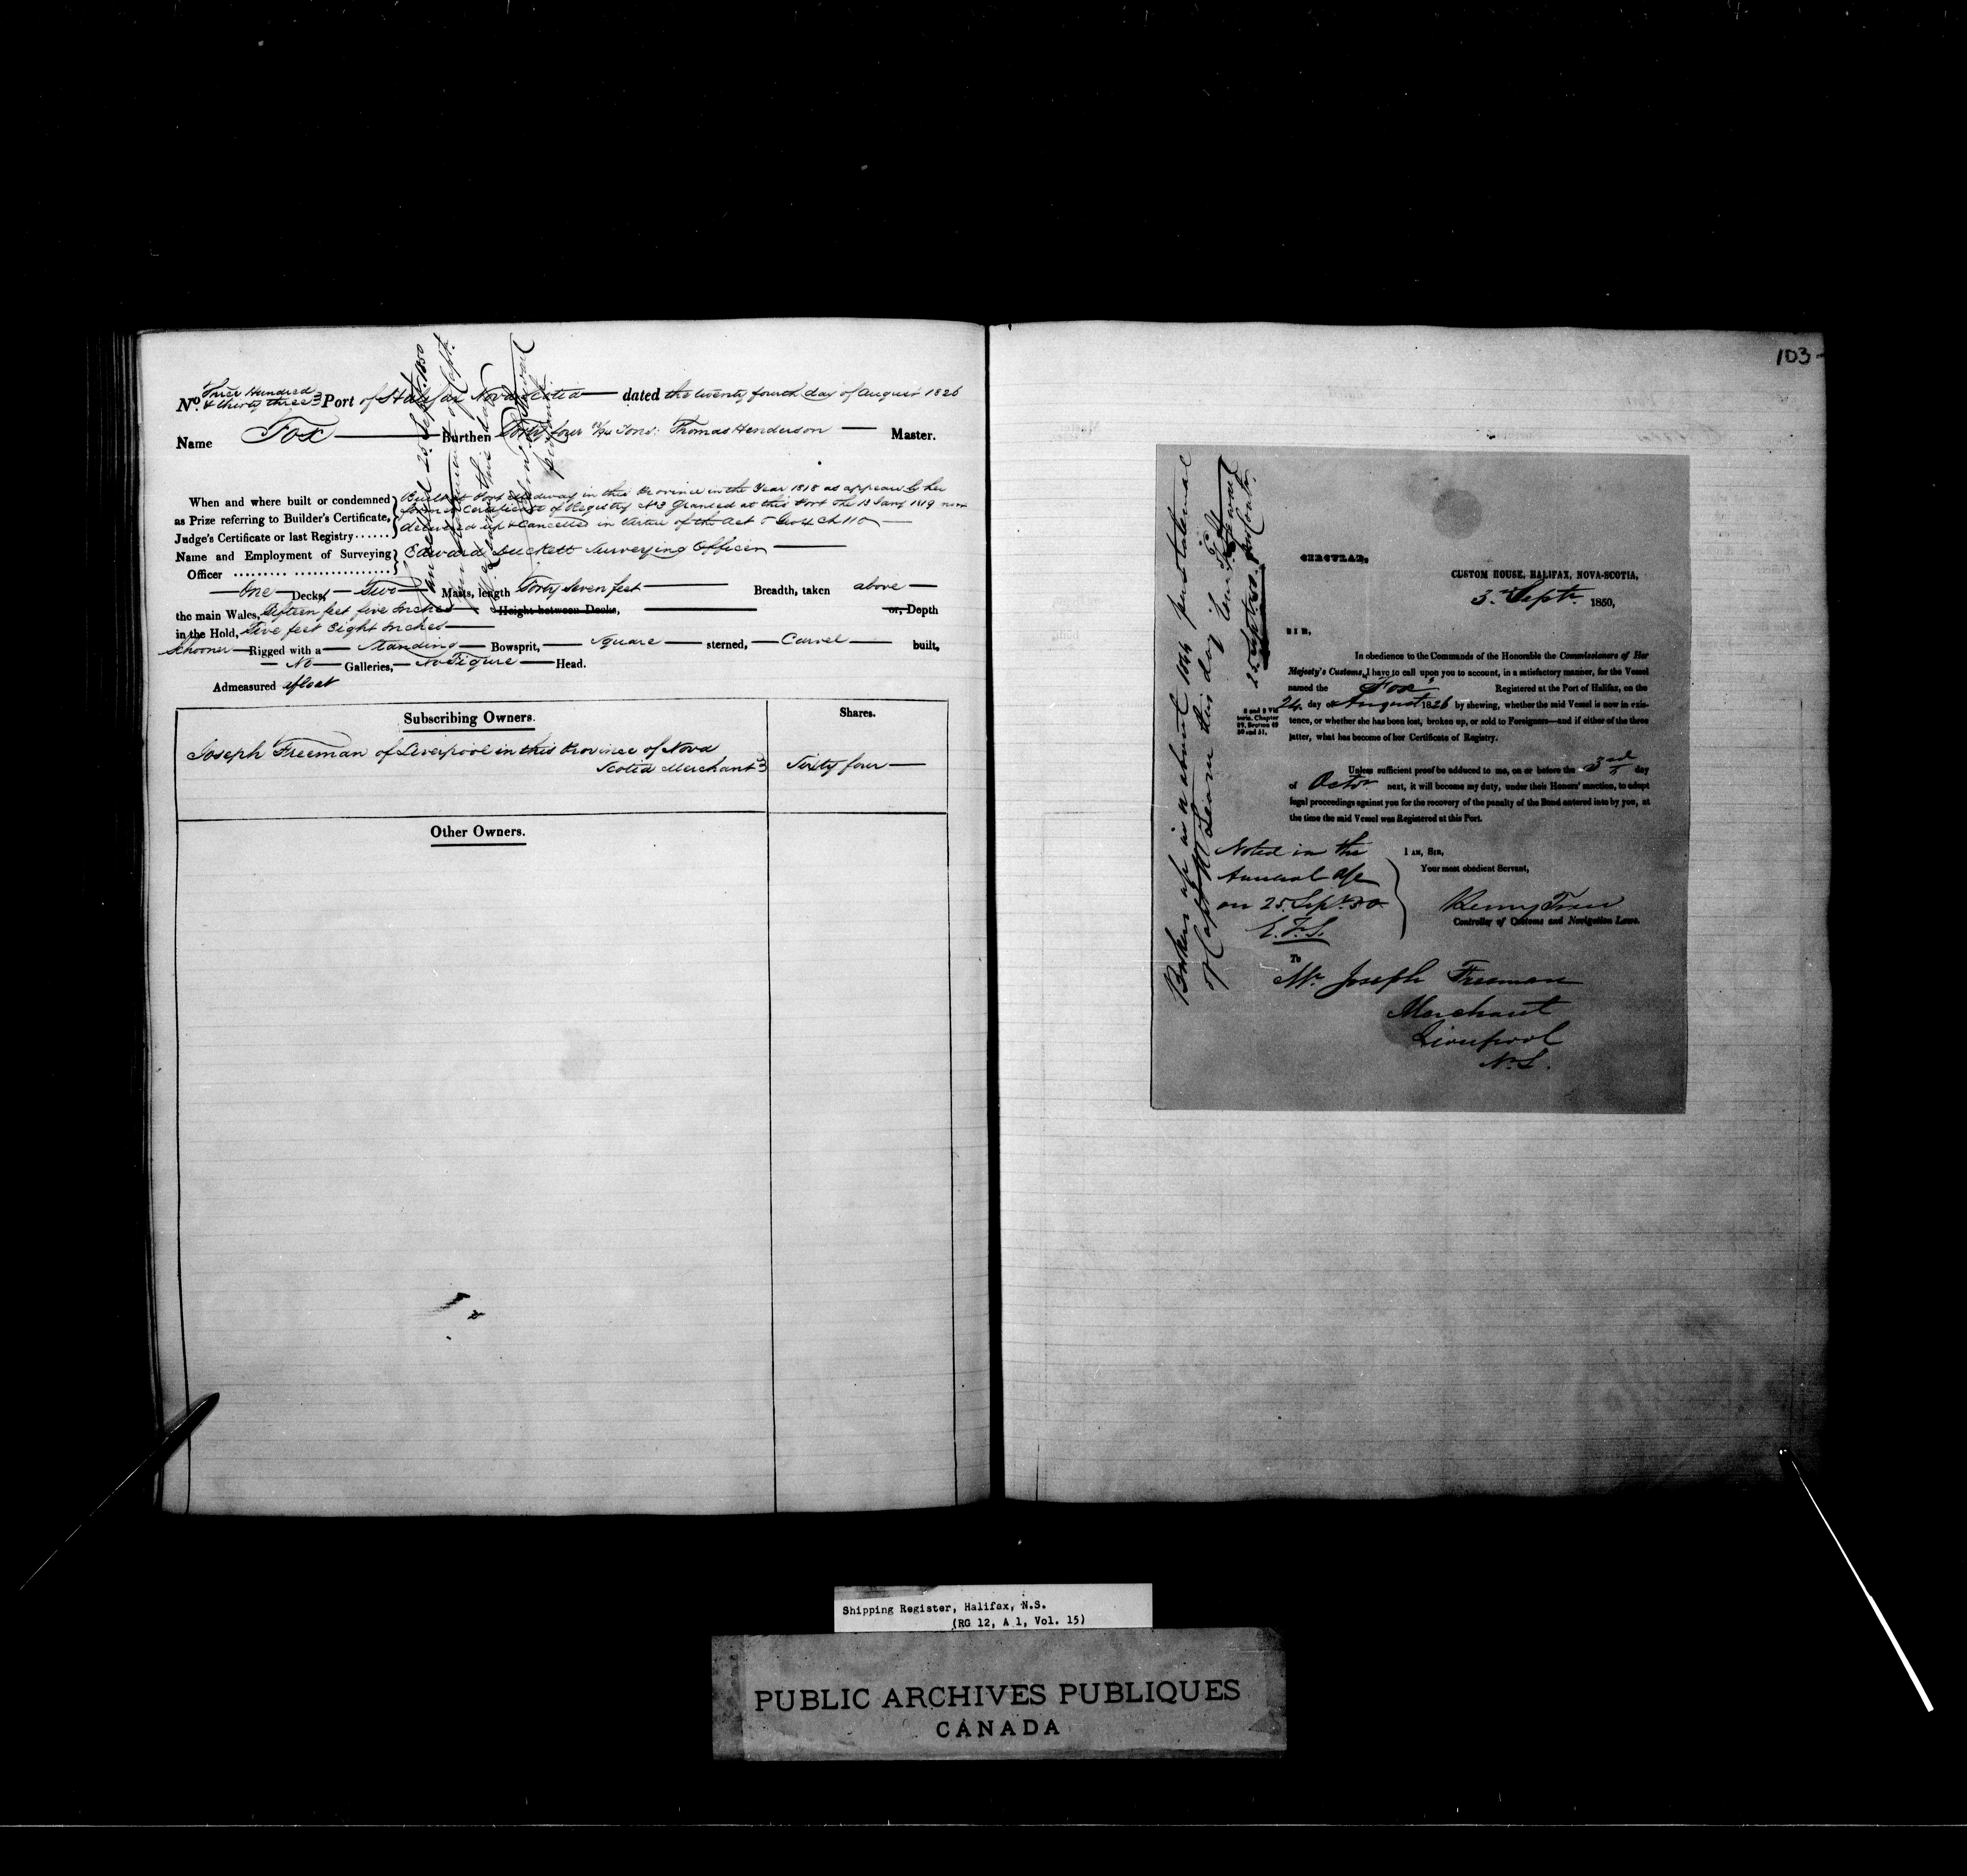 103
No. Three Hundred & thirty three Port of Halifax Nova Scotia dated the twenty fourth day of August 1826
Name Fox Burthen Forty four Tons. Thomas Henderson Master.
When and where built or condemned
as Prize referring to Builder's Certificate,
Judge's Certificate or last Registry ......
Built at Port Medway in this Province in the Year 1818 as appears by her
former Certificate of Registry No 3 Granted at this Port the 13 Jany 1819 now
delivered up & Cancelled in virtue of the Act 5 Geo 4 Ch 110
Name and Employment of Surveying Edward Duckett Surveying Officer
Officer
One Decks, Two Masts, length Forty Seven feet Breadth, taken above
the main Wales, fifteen feet five Inches Height between Decks, or, Depth
in the Hold, Five feet Eight Inches
Schooner Rigged with a Standing Bowsprit, Square sterned, Carvel built,
No Galleries, No Figure Head.
Admeasured afloat
Cancelled 25 Septr. 1850
Subscribing Owners.
Shares.
Joseph Freeman of Liverpool in this Province of Nova
Scotia Merchant
Sixty four
Other Owners.
Broken up in or about 1844 per statement
of Capt this day
25 Sept. 50
CIRCULAR,
CUSTOM HOUSE, HALIFAX, NOVA-SCOTIA,
3rd Septr. 1850,
SIR,
In obedience to the Commands of the Honorable the Commissioners of Her
Majesty's Customs, I have to call upon you to account, in a satisfactory manner, for the Vessel
named the Fox Registered at the Port of Halifax, on the
24 day of August 1826 by shewing, whether the said Vessel is now in exis-
tence, or whether she has been lost, broken up, or sold to Foreigners—and if either of the three
latter, what has become of her Certificate of Registry.
8 and 9 Vic
toria, Chapter
89, Section 49
50 and 51.
Unless sufficient proof be adduced to me, on or before the 3rd day
of Octor next, it will become my duty, under their Honors' sanction, to adopt
legal proceedings against you for the recovery of the penalty of the Bond entered into by you, at
the time the said Vessel was Registered at this Port.
Noted in the
Annual a/c
on 25 Sept. 50
I AM, SIR,
Your most obedient Servant,
Controller of Customs and Navigation Laws.
To
Mr. Joseph Freeman
Merchant
Liverpool
N.S.
Shipping Register, Halifax, N.S.
(RG 12, A 1, Vol. 15)
PUBLIC ARCHIVES PUBLIQUES
CANADA